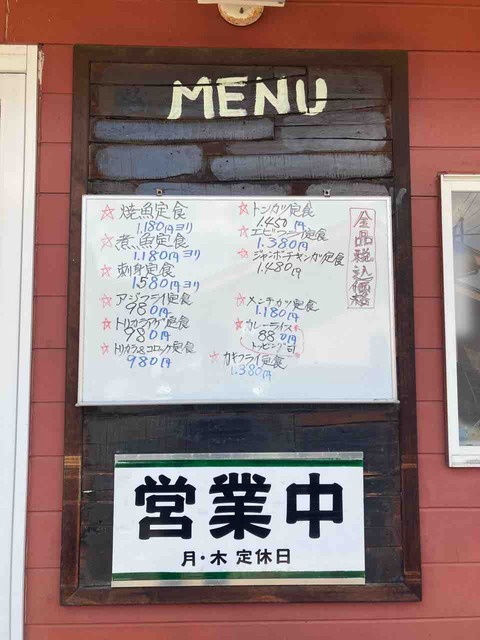 MENU
☆焼魚定食
1.180円ヨリ
☆煮魚定食
1.180円ヨリ
☆刺身定食
1580円ヨリ
☆アジフライ定食
980円
☆トリカラアゲ定食
980円
☆トリカラ&コロッケ定食
980円
☆トンカツ定食
1.450円
☆エビフライ定食
1.380円
☆ジャンボチキンカツ定食
1.480円
☆メンチカツ定食
1.180円
☆カレーライス
880円
トッピング可
☆カキフライ定食
1.380円
全品税込価格
営業中
月・木 定休日